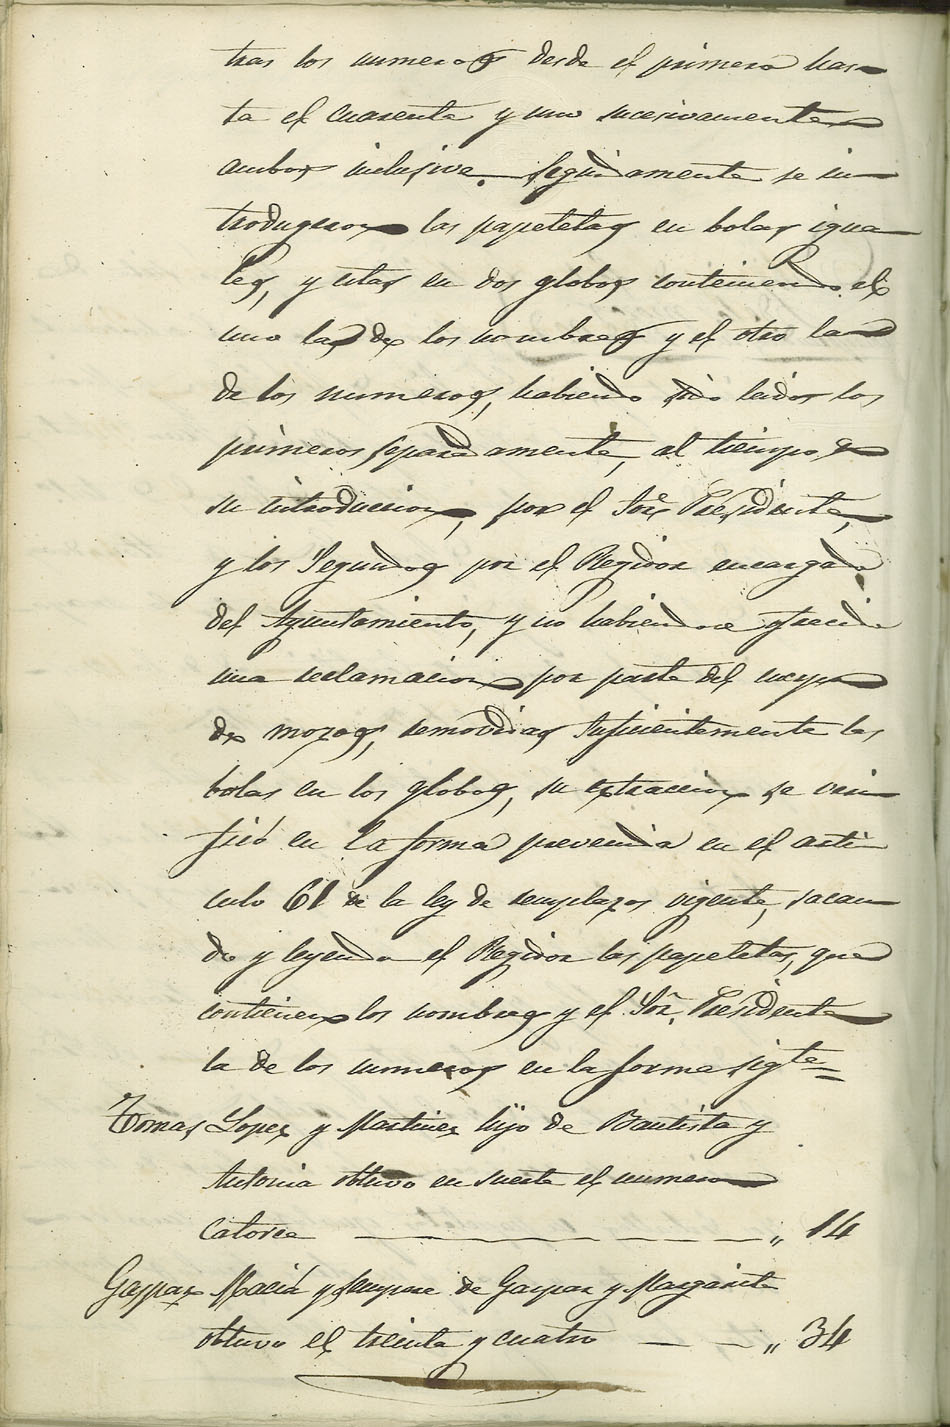 tras los numeros desde el primero has-
ta el cuarenta y uno sucesivamente
ambos inclusive. Seguidamente se in
trodugeron las papeletas en bolas igua
les, y estas en dos globos conteniendo el
uno las de los nombres y el otro las
de los numeros, habiendo sido leidos los
primeros separadamente, al tiempo de
su introduccion, por el Sor. Presidente,
y los Segundos por el Regidor encargado
del Ayuntamiento, y no habiendose ofrecido
una reclamacion por parte del
de mozos, removidas suficientemente las
bolas en los globos, su extraccion se veri
ficó en la forma prevenida en el arti
culo 61 de la ley de remplazos vigente, sacan
do y leyendo el Regidor las papeletas, que
contienen los nombres y el Sor. Presidente
la de los numeros en la forma sigte=
Tomas Lopez y Martinez hijo de Bautista y
Antonia obtuvo en suerte el numero
Catorce — — — — — — — „ 14
Gaspar Maciá y Sempere de Gaspar y Margarita
obtuvo el treinta y cuatro — — „ 34